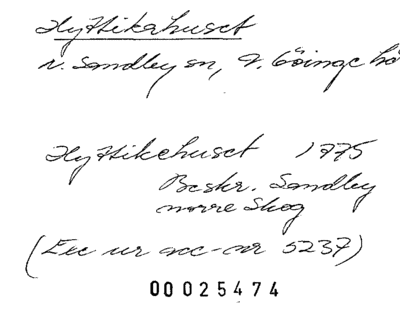 Hyttikehuset
n. Sandby sn, V. Göinge hä
Hyttikehuset 1775
Beskr. Sandby
norre Skog
(Exc ur acc-nr 5237)
00025474